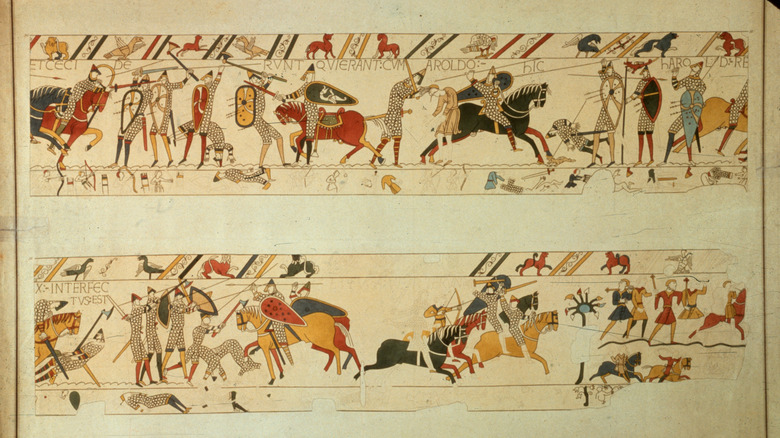 ET CECI DE RVNT QVI ERANT: CVM AROLDO:- hIC hAROLD:- RE
X:- INTERFEC
TVS: EST